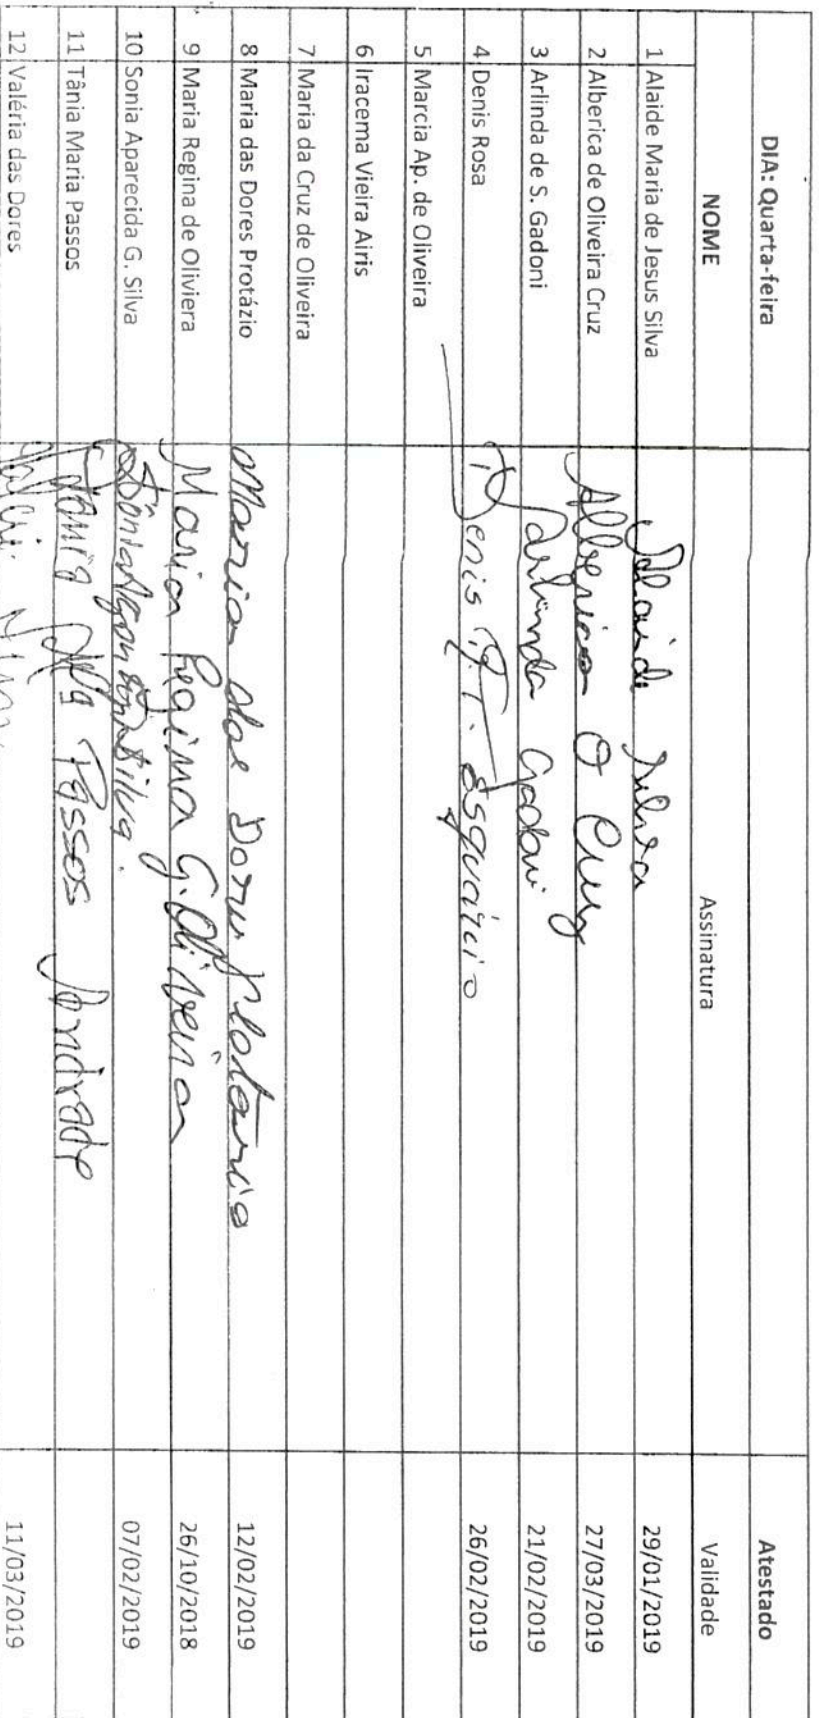 DIA: Quarta-feira Atestado
NOME Assinatura Validade
1 Alaide Maria de Jesus Silva Alaide Silva 29/01/2019
2 Alberica de Oliveira Cruz Alberica O Cruz 27/03/2019
3 Arlinda de S. Gadoni Arlinda Gadoni 21/02/2019
4 Denis Rosa Denis 26/02/2019
5 Marcia Ap. de Oliveira
6 Iracema Vieira Airis
7 Maria da Cruz de Oliveira
8 Maria das Dores Protázio Maria das Dores 12/02/2019
9 Maria Regina de Oliviera Maria Regina G. Oliveira 26/10/2018
10 Sonia Aparecida G. Silva Sônia Silva. 07/02/2019
11 Tânia Maria Passos Tania Mª Passos Andrade
12 Valéria das Dores 11/03/2019